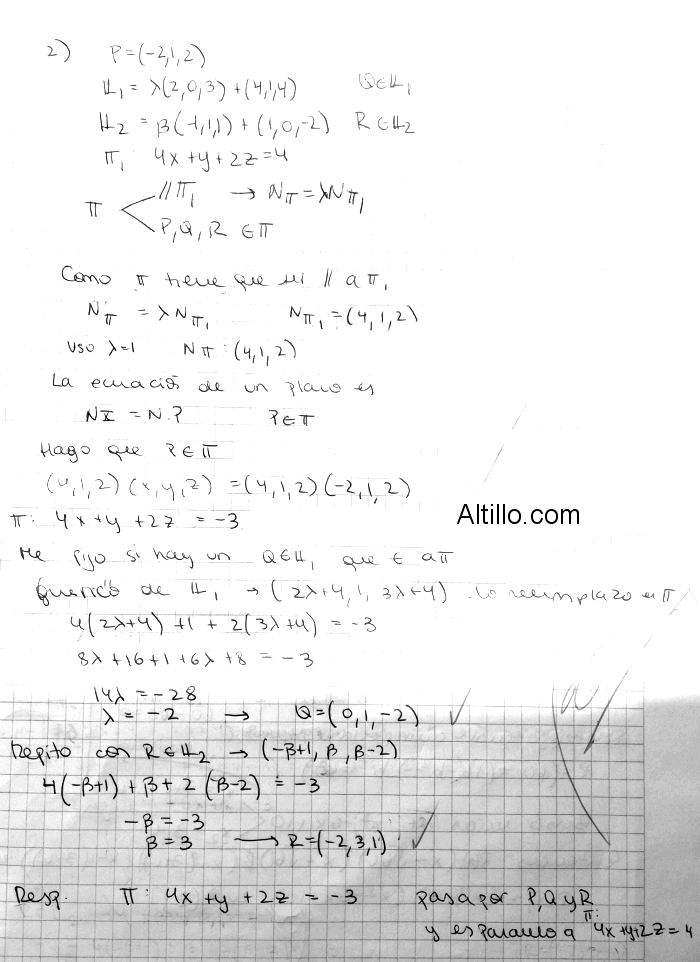 2) P=(-2,1,2)
𝕃₁ = λ(2,0,3)+(4,1,4) Q∈𝕃₁
𝕃₂ = β(-1,1,1)+(1,0,-2) R∈𝕃₂
π₁ 4x+y+2z=4
π // π₁ → Nπ = λNπ₁
P,Q,R ∈π
Como π tiene que ser // a π₁
Nπ = λNπ₁ Nπ₁=(4,1,2)
uso λ=1 Nπ:(4,1,2)
La ecuación de un plano es
NX = N.P P∈π
Hago que P∈π
(4,1,2)(x,y,z) = (4,1,2)(-2,1,2)
π: 4x+y+2z = -3
Altillo.com
Me fijo si hay un Q∈𝕃₁ que ∈ a π
de 𝕃₁ → (2λ+4,1,3λ+4). Lo reemplazo en π
4(2λ+4)+1+2(3λ+4) = -3
8λ+16+1+6λ+8 = -3
14λ = -28
λ = -2 → Q=(0,1,-2) ✓
Repito con R∈𝕃₂ → (-β+1, β, β-2)
4(-β+1)+β+2(β-2) = -3
-β = -3
β = 3 → R=(-2,3,1) ✓
Resp. π: 4x+y+2z = -3 pasa por P,Q y R
y es paralelo a π: 4x+y+2z=4